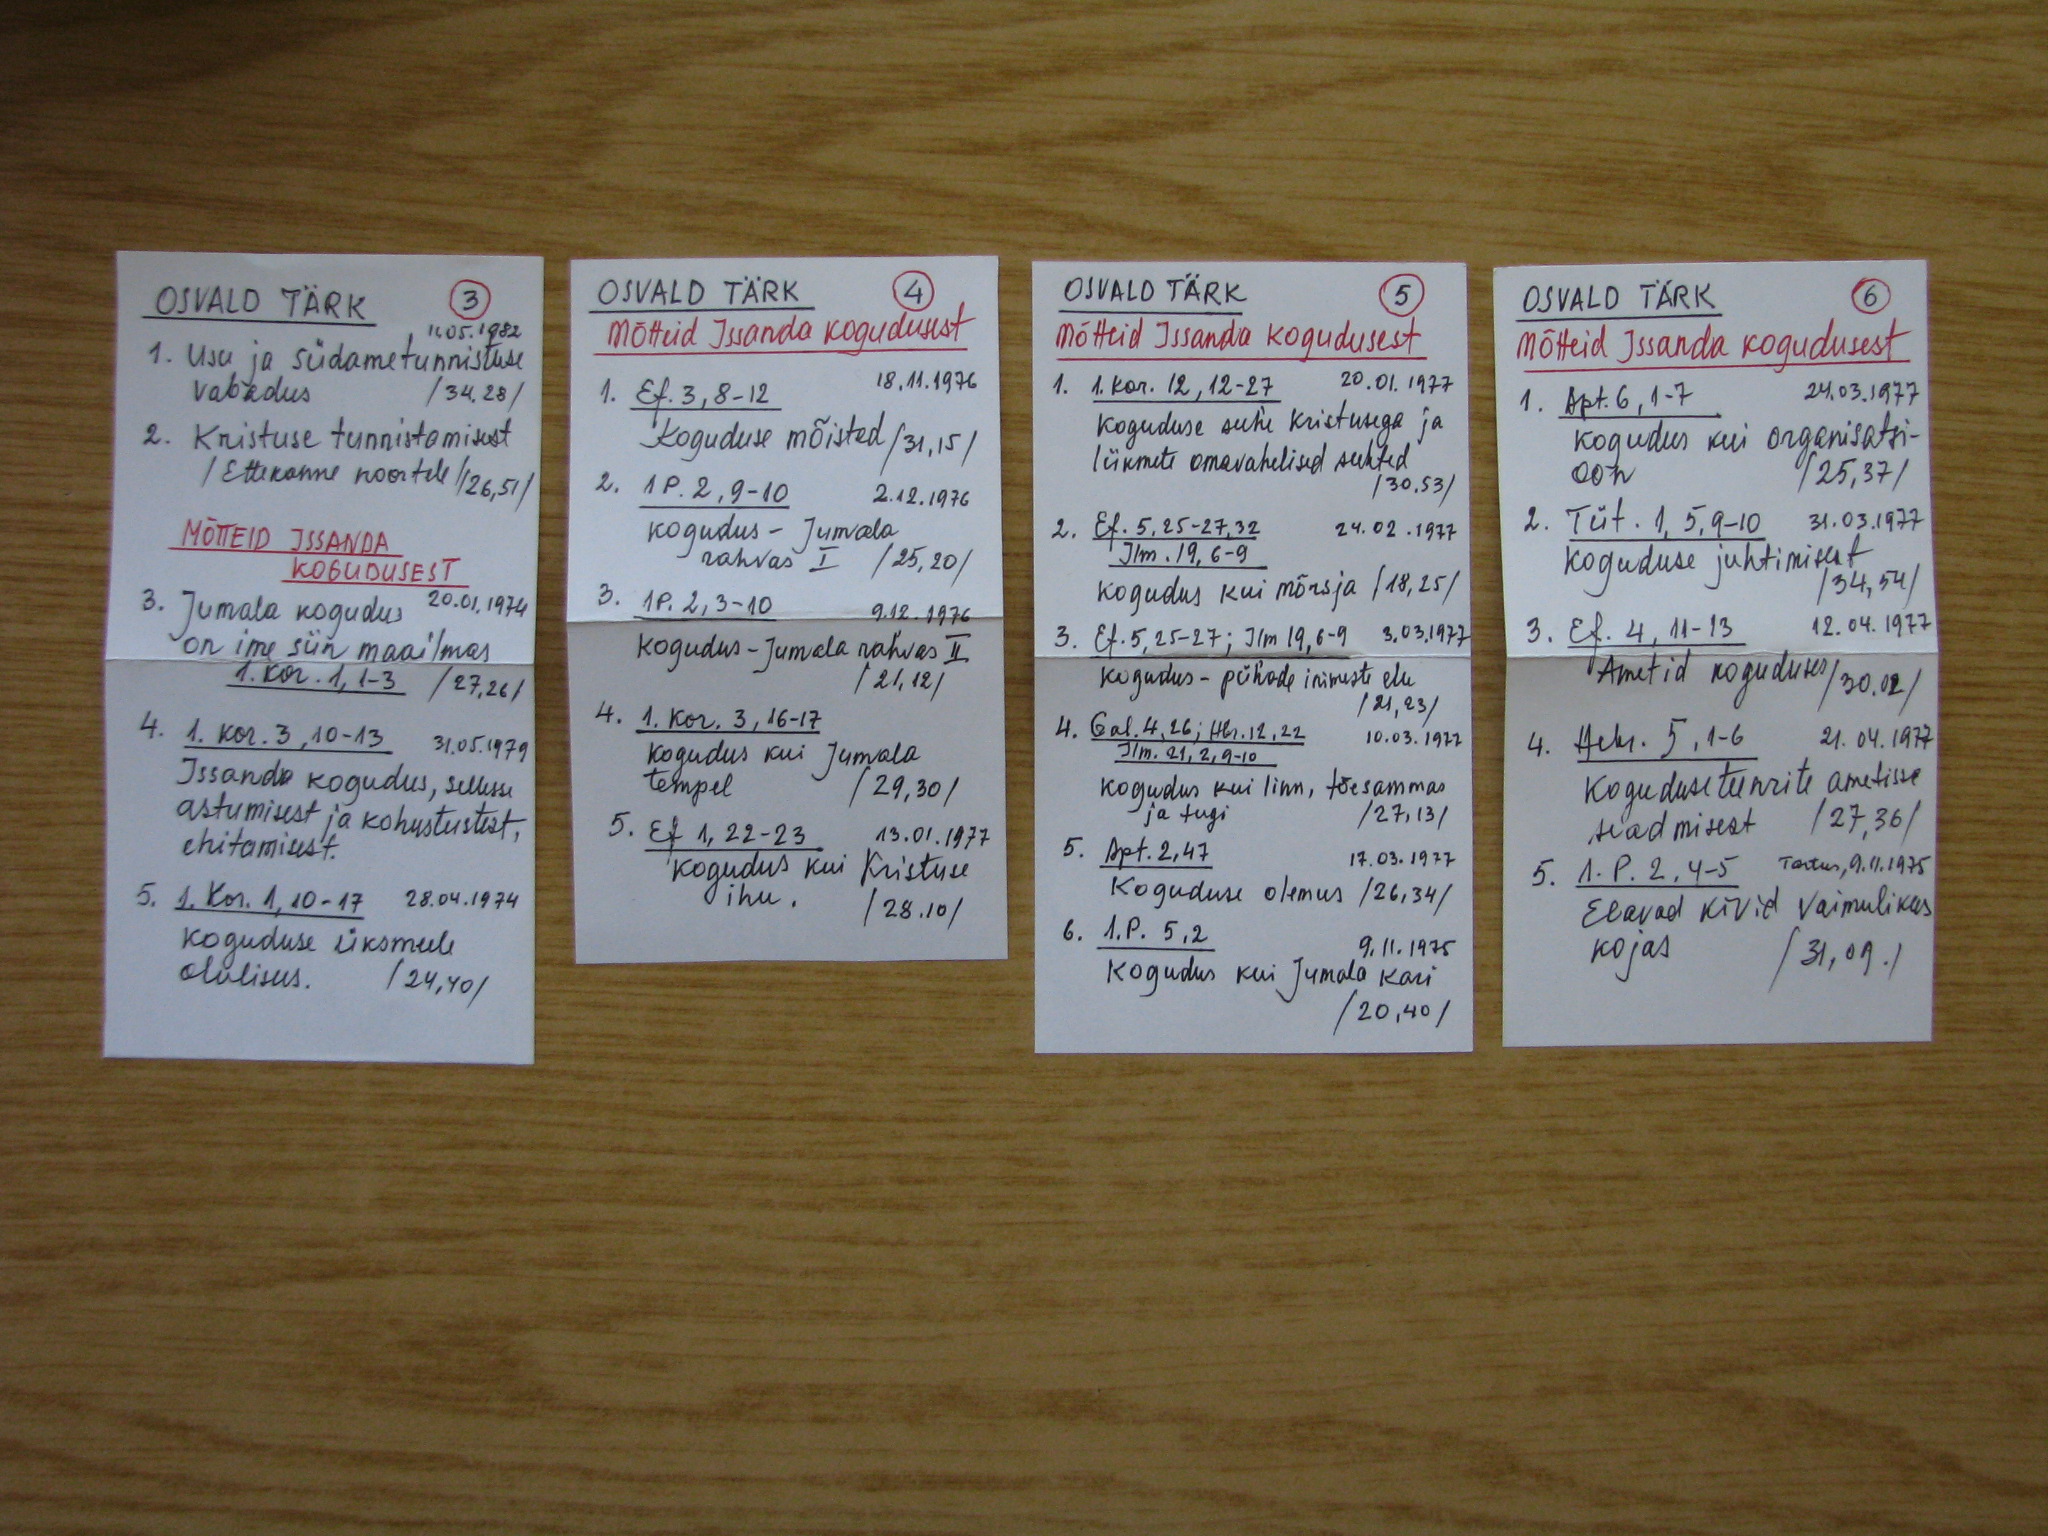 OSVALD TÄRK 3
11.05.1982
1. Usu ja südametunnistuse
vabadus /34.28/
2. Kristuse tunnistamisest
/Ettekanne noortele/ /26,51/
MÕTTEID ISSANDA
KOGUDUSEST
3. Jumala kogudus 20.01.1974
on ime siin maailmas
1. Kor. 1, 1-3 /27,26/
4. 1. Kor. 3, 10-13 31.05.1979
Issanda kogudus, sellesse
astumisest ja kohustustest,
ehitamisest.
5. 1. Kor. 1, 10-17 28.04.1974
Koguduse üksmeele
olulisus. /24,40/
OSVALD TÄRK 4
Mõtteid Issanda kogudusest
18.11.1976
1. Ef. 3, 8-12
Koguduse mõisted /31,15/
2. 1P. 2, 9-10 2.12.1976
Kogudus - Jumala
rahvas I /25,20/
3. 1P. 2, 3-10 9.12.1976
Kogudus - Jumala rahvas II
/21,12/
4. 1. Kor. 3, 16-17
Kogudus kui Jumala
tempel /29,30/
5. Ef 1, 22-23 13.01.1977
Kogudus kui Kristuse
ihu. /28.10/
OSVALD TÄRK 5
Mõtteid Issanda kogudusest
1. 1. Kor. 12, 12-27 20.01.1977
Koguduse suhe Kristusega ja
liikmete omavahelised suhted
/30.53/
2. Ef. 5, 25-27, 32 24.02.1977
Ilm. 19, 6-9
Kogudus kui mõrsja /18,25/
3. Ef. 5, 25-27; Ilm 19, 6-9 3.03.1977
Kogudus - pühade inimeste elu
/21,23/
4. Gal. 4, 26; Hbr. 12, 22 10.03.1977
Ilm. 21, 2, 9-10
Kogudus kui linn, tõesammas
ja tugi /27,13/
5. Apt. 2, 47 17.03.1977
Koguduse olemus /26,34/
6. 1.P. 5,2 9.11.1975
Kogudus kui Jumala kari
/20,40/
OSVALD TÄRK 6
Mõtteid Issanda kogudusest
1. Apt. 6, 1-7 24.03.1977
Kogudus kui organisatsi-
oon /25,37/
2. Tiit. 1, 5, 9-10 31.03.1977
Koguduse juhtimisest
/34,54/
3. Ef. 4, 11-13 12.04.1977
Ametid koguduses /30.02/
4. Hebr. 5, 1-6 21.04.1977
Koguduseteenrite ametisse
seadmisest /27,36/
5. 1. P. 2, 4-5 Tartus, 9.11.1975
Elavad kivid vaimulikus
kojas /31,09./